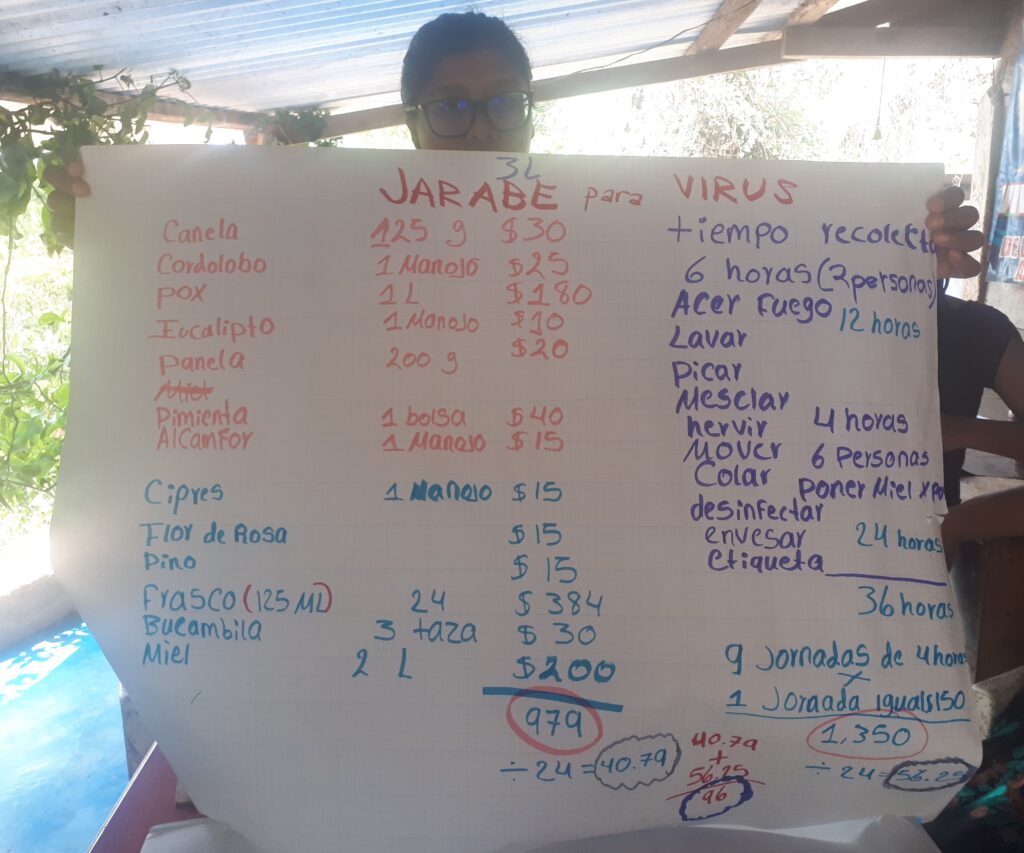 3L
JARABE para VIRUS
Canela 125 g $30
Cordolobo 1 Manojo $25
POX 1L $180
Eucalipto 1 Manojo $10
Panela 200 g $20
Miel
Pimienta 1 bolsa $40
AlCamFor 1 Manojo $15
Cipres 1 Manojo $15
Flor de Rosa $15
Pino $15
Frasco (125 ML) 24 $384
Bucambila 3 taza $30
Miel 2 L $200
979
÷ 24 = 40.79
tiempo recolecta
6 horas (2 personas)
Acer Fuego 12 horas
Lavar
Picar
Mesclar
hervir 4 horas
Mover 6 Personas
Colar Poner Miel
desinfectar
envesar 24 horas
Etiqueta
36 horas
9 Jornadas de 4 horas
x
1 Joraada igual $150
1,350
÷ 24 = 56.25
40.79
+
56.25
96